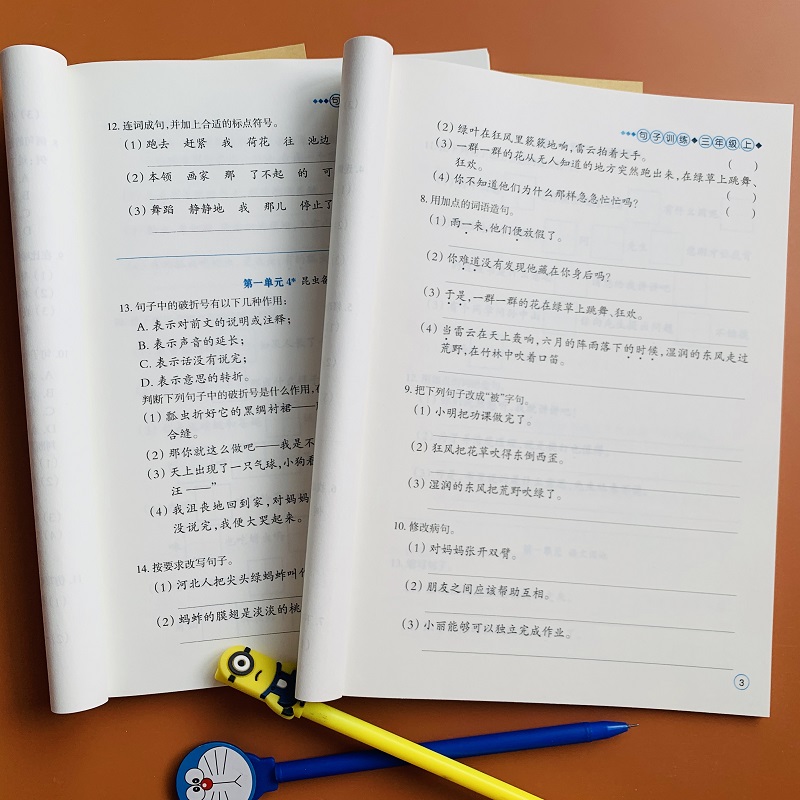 12. 连词成句,并加上合适的标点符号。
(1) 跑去 赶紧 我 荷花 往 池边
(2) 本领 画家 那 了不起 的 可
(3) 舞蹈 静静地 我 那儿 停止了
第一单元 4* 昆虫备
13. 句子中的破折号有以下几种作用:
A. 表示对前文的说明或注释;
B. 表示声音的延长;
C. 表示话没有说完;
D. 表示意思的转折。
判断下列句子中的破折号是什么作用,在
(1) 瓢虫折好它的黑绸衬裙——
合缝。
(2) 那你就这么做吧——我是不
(3) 天上出现了一只气球,小狗看
汪——”
(4) 我沮丧地回到家,对妈妈
没说完,我便大哭起来。
14. 按要求改写句子。
(1) 河北人把尖头绿蚂蚱叫作
(2) 蚂蚱的膜翅是淡淡的桃
句子训练◆三年级上
(2) 绿叶在狂风里簌簌地响,雷云拍着大手。 ( )
(3) 一群一群的花从无人知道的地方突然跑出来,在绿草上跳舞、
狂欢。 ( )
(4) 你不知道他们为什么那样急急忙忙吗? ( )
8. 用加点的词语造句。
(1) 雨一来,他们便放假了。
(2) 你难道没有发现他藏在你身后吗?
(3) 于是,一群一群的花在绿草上跳舞、狂欢。
(4) 当雷云在天上轰响,六月的阵雨落下的时候,湿润的东风走过
荒野,在竹林中吹着口笛。
9. 把下列句子改成“被”字句。
(1) 小明把功课做完了。
(2) 狂风把花草吹得东倒西歪。
(3) 湿润的东风把荒野吹绿了。
10. 修改病句。
(1) 对妈妈张开双臂。
(2) 朋友之间应该帮助互相。
(3) 小丽能够可以独立完成作业。
3